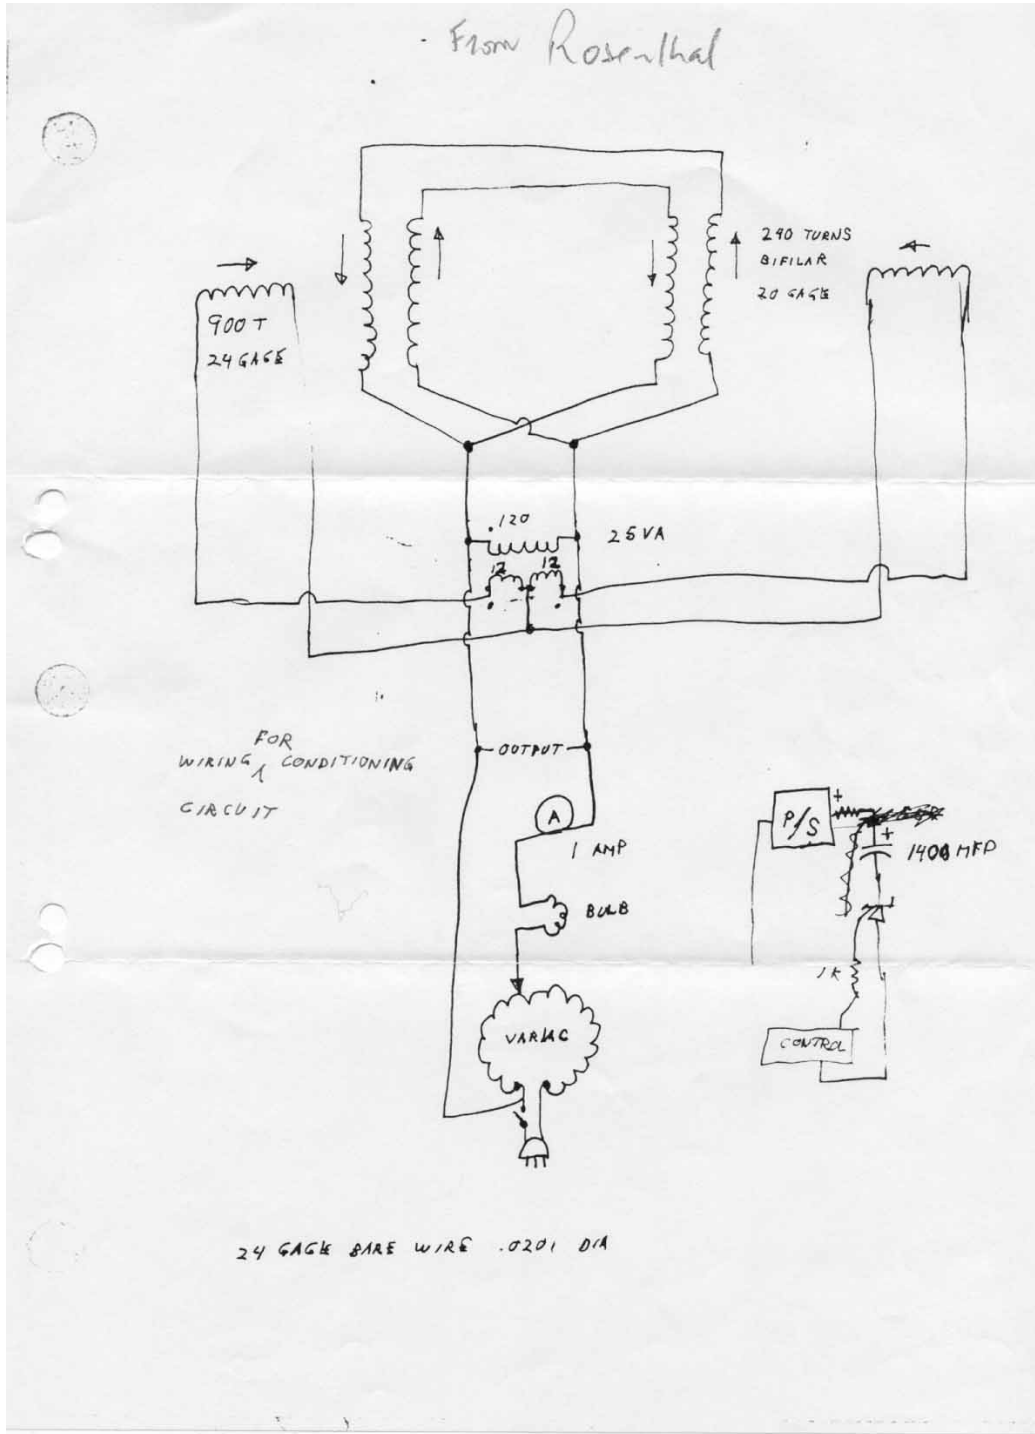 From Rosenthal
290 TURNS
BIFILAR
20 GAGE
900 T
24 GAGE
.120
25 VA
12 12
OUTPUT
FOR
WIRING CONDITIONING
CIRCUIT
A
1 AMP
BULB
VARIAC
P/S
+
+
1400 MFD
1K
CONTROL
24 GAGE BARE WIRE .0201 DIA